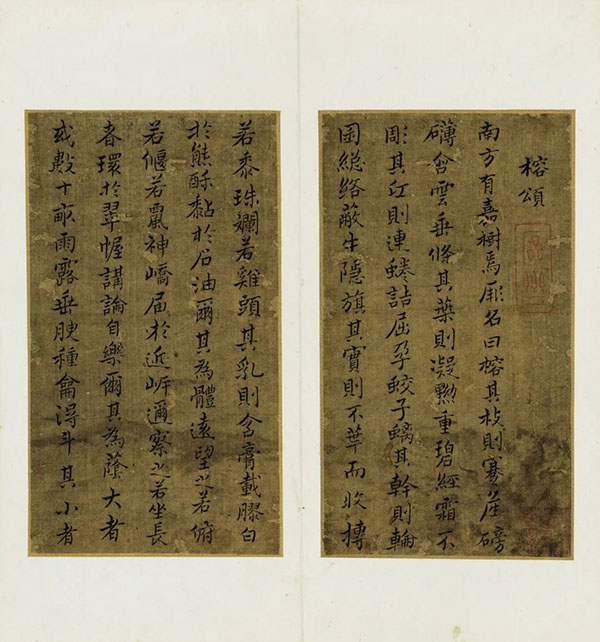 榕頌
南方有嘉樹焉厥名曰榕其枝則蹇崖磅
礴會雲垂倏其葉則凝黝重碧經霜不
彫其瓜則連蜷詰屈孕蛟子螭其幹則輪
囷緫絡蔽牛隱旗其實則不華而收摶
若黍珠斕若雞頭其乳則含膏載膠白
於熊酥黏於石油爾其為體遠望之若俯
若偃若鼂神嶠届於近岸邇察之若坐長
者環於翠幄講論自樂爾其為蔭大者
或數十畝雨露垂腴種龠得斗其小者